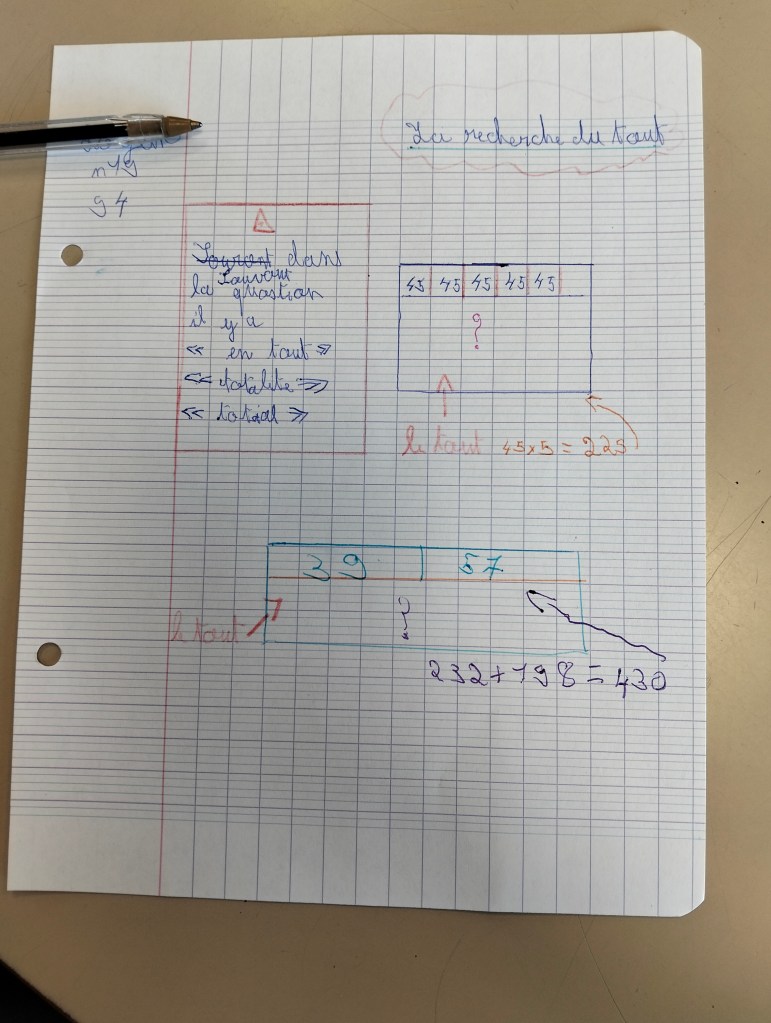 La recherche du tout
n°19
g 4
Souvent dans
Souvent
la question
il y a
« en tout »
« totalite »
« total »
45 45 45 45 45
?
le tout 45x5 = 225
39 57
?
le tout
232+198=430